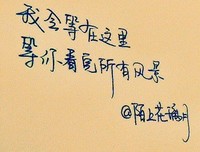 我会等在这里
等你看完所有风景
@陌上花漓月